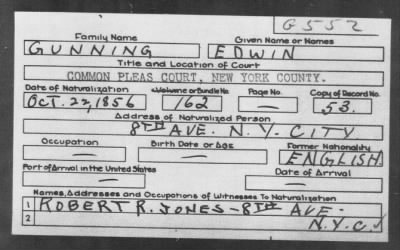 G552
Family Name Given Name or Names
GUNNING EDWIN
Title and Location of Court
COMMON PLEAS COURT, NEW YORK COUNTY.
Date of Naturalization Volume or Bundle No. Page No. Copy of Record No.
OCT. 22, 1856 162 — 53.
Address of Naturalized Person
8TH AVE. N.Y. CITY
Occupation Birth Date or Age Former Nationality
— — ENGLISH
Port of Arrival in the United States Date of Arrival
— —
Names, Addresses and Occupations of Witnesses To Naturalization
1 ROBERT R. JONES - 8TH AVE.
2 N.Y.C.